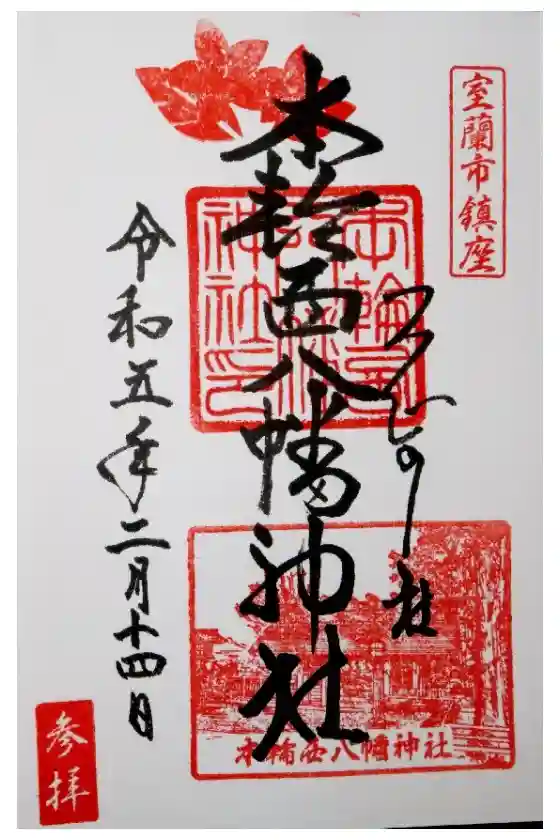 室蘭市鎮座
本輪西八幡神社
本輪西八幡神社印
本輪西八幡神社
令和五年二月十四日
参拝